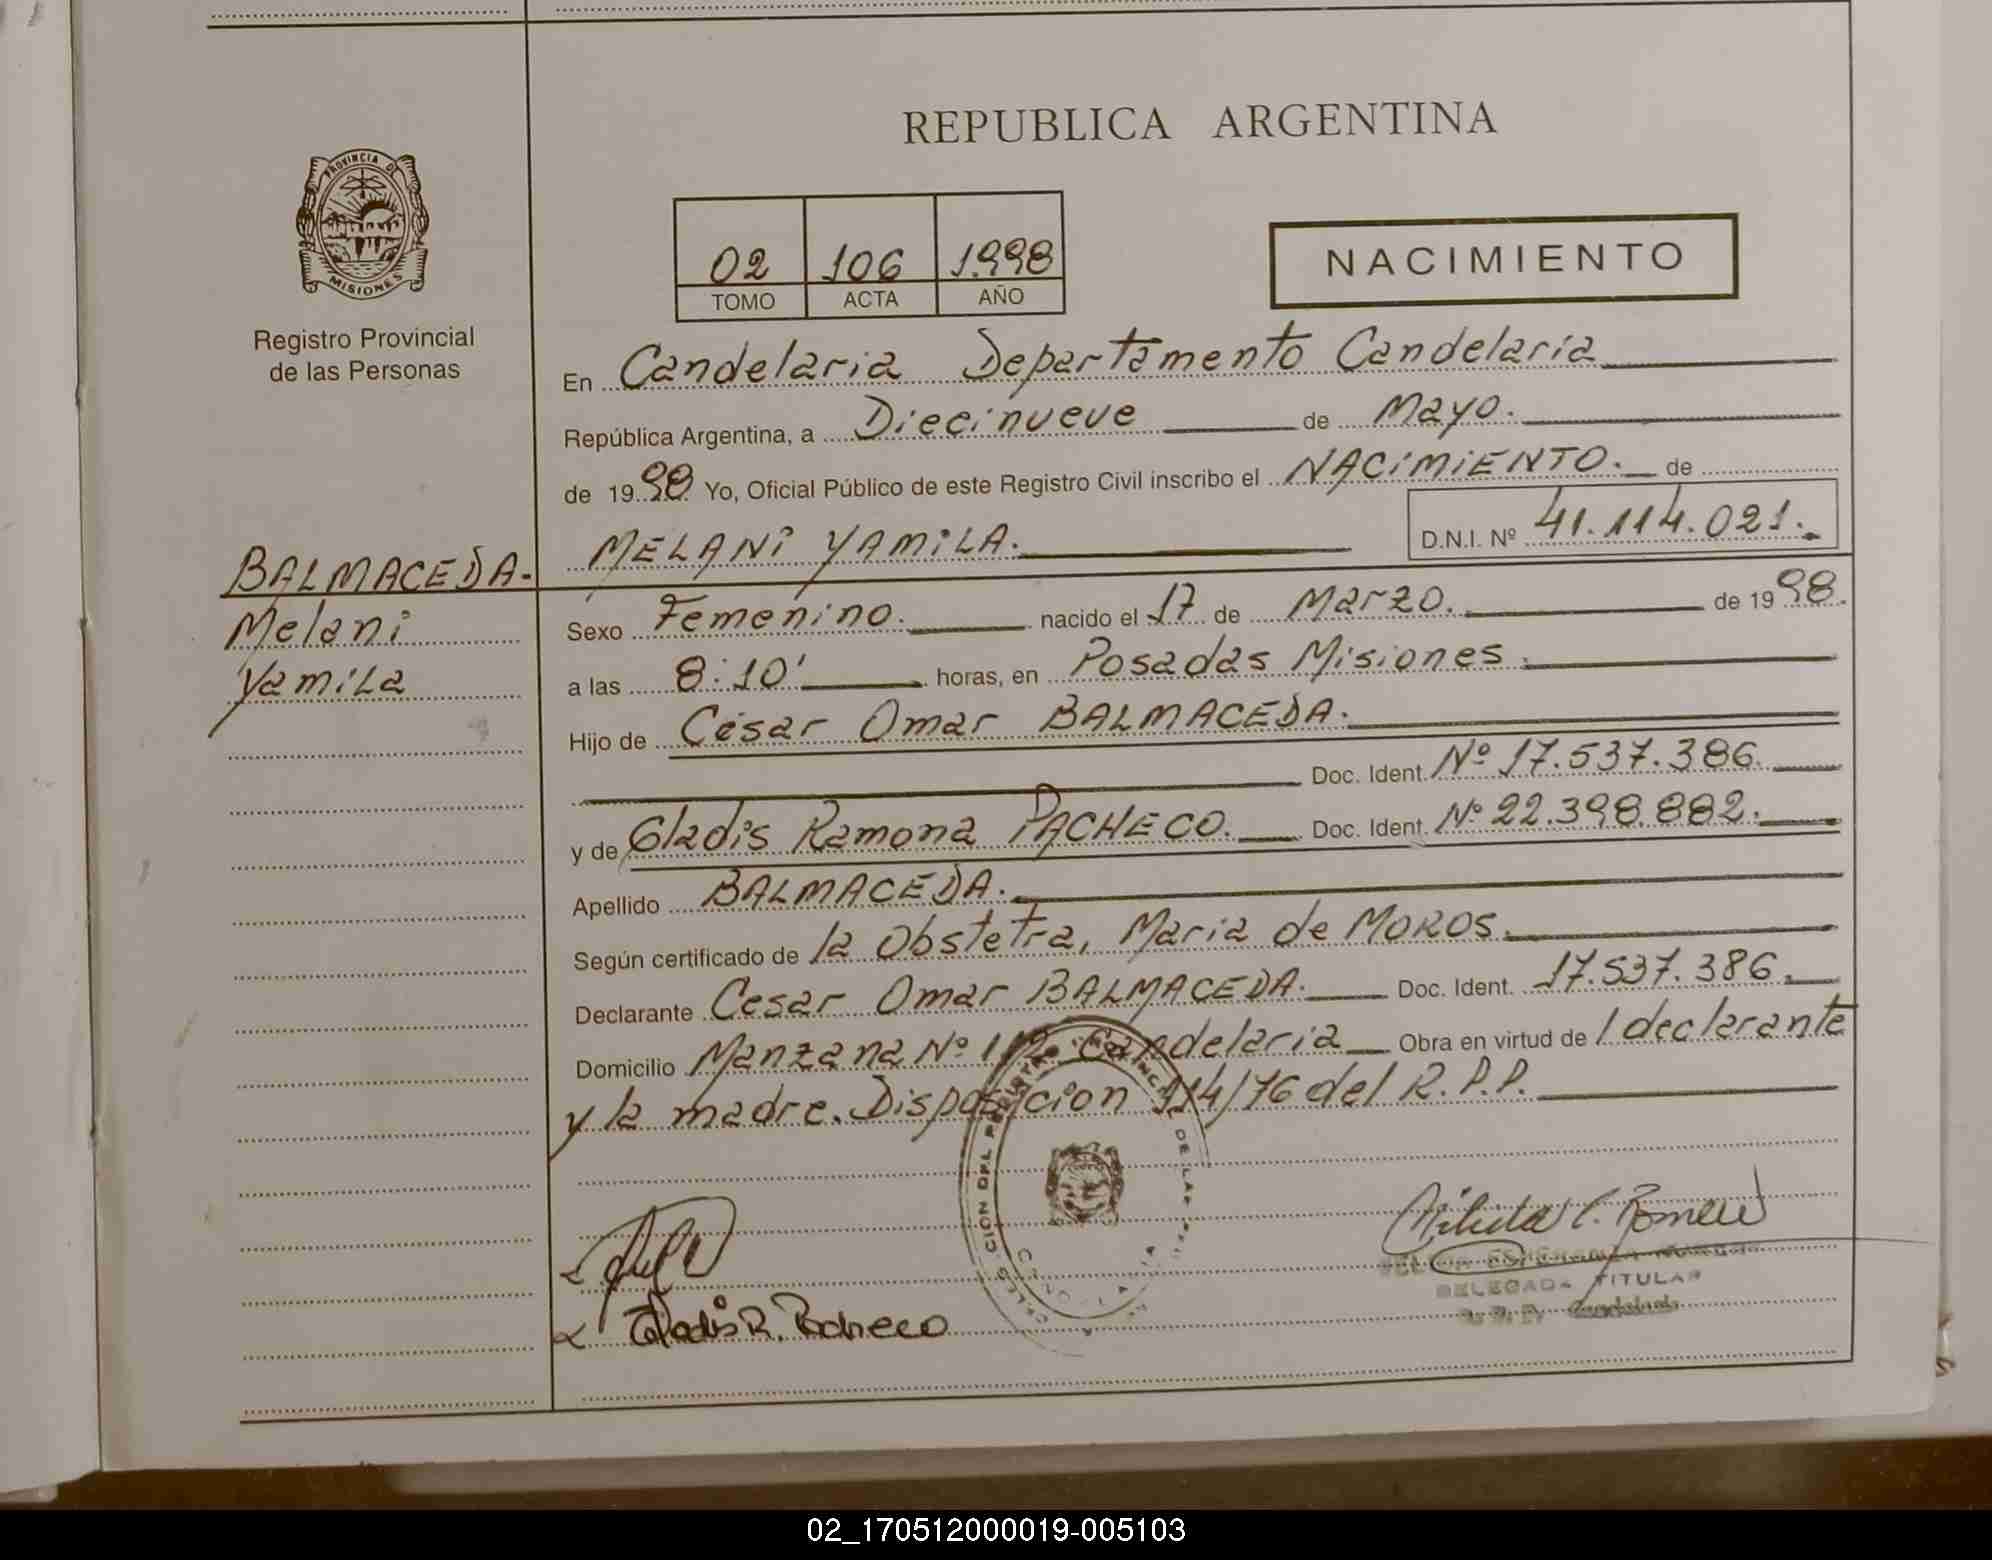 REPUBLICA ARGENTINA
PROVINCIA DE
MISIONES
Registro Provincial
de las Personas
02 106 1.998
TOMO ACTA AÑO
NACIMIENTO
En Candelaria Departamento Candelaria
República Argentina, a Diecinueve de Mayo.
de 1998 Yo, Oficial Público de este Registro Civil inscribo el NACIMIENTO. de
MELANI YAMILA. D.N.I. Nº 41.114.021.
BALMACEDA.
Melani
Yamila
Sexo Femenino. nacido el 17 de Marzo. de 1998.
a las 8:10' horas, en Posadas Misiones.
Hijo de César Omar BALMACEDA.
Doc. Ident. Nº 17.537.386.
y de Gladis Ramona PACHECO. Doc. Ident. Nº 22.398.882.
Apellido BALMACEDA.
Según certificado de la Obstetra, Maria de MOROS.
Declarante Cesar Omar BALMACEDA. Doc. Ident. 17.537.386.
Domicilio Manzana Nº 112 Candelaria Obra en virtud de l declarante
y la madre. Disposicion 114/76 del R.P.P.
Gladis R. Pacheco
DELEGADA TITULAR
02_170512000019-005103